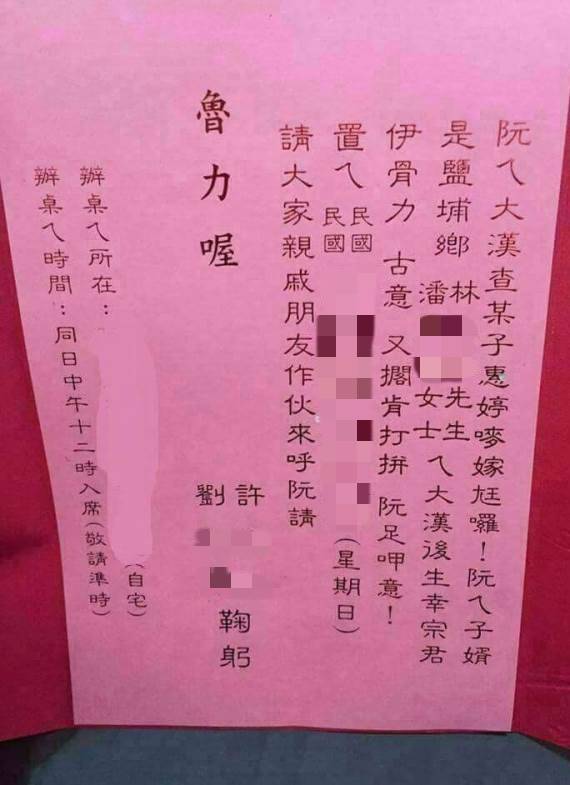 阮ㄟ大漢查某子惠婷嘜嫁尪囉！阮ㄟ子婿
是鹽埔鄉林先生潘女士ㄟ大漢後生幸宗君
伊骨力 古意 又擱肯打拼 阮足呷意！
置ㄟ民國民國(星期日)
請大家親戚朋友作伙來呼阮請
魯力喔
許劉鞠躬
辦桌ㄟ所在：(自宅)
辦桌ㄟ時間：同日中午十二時入席(敬請準時)